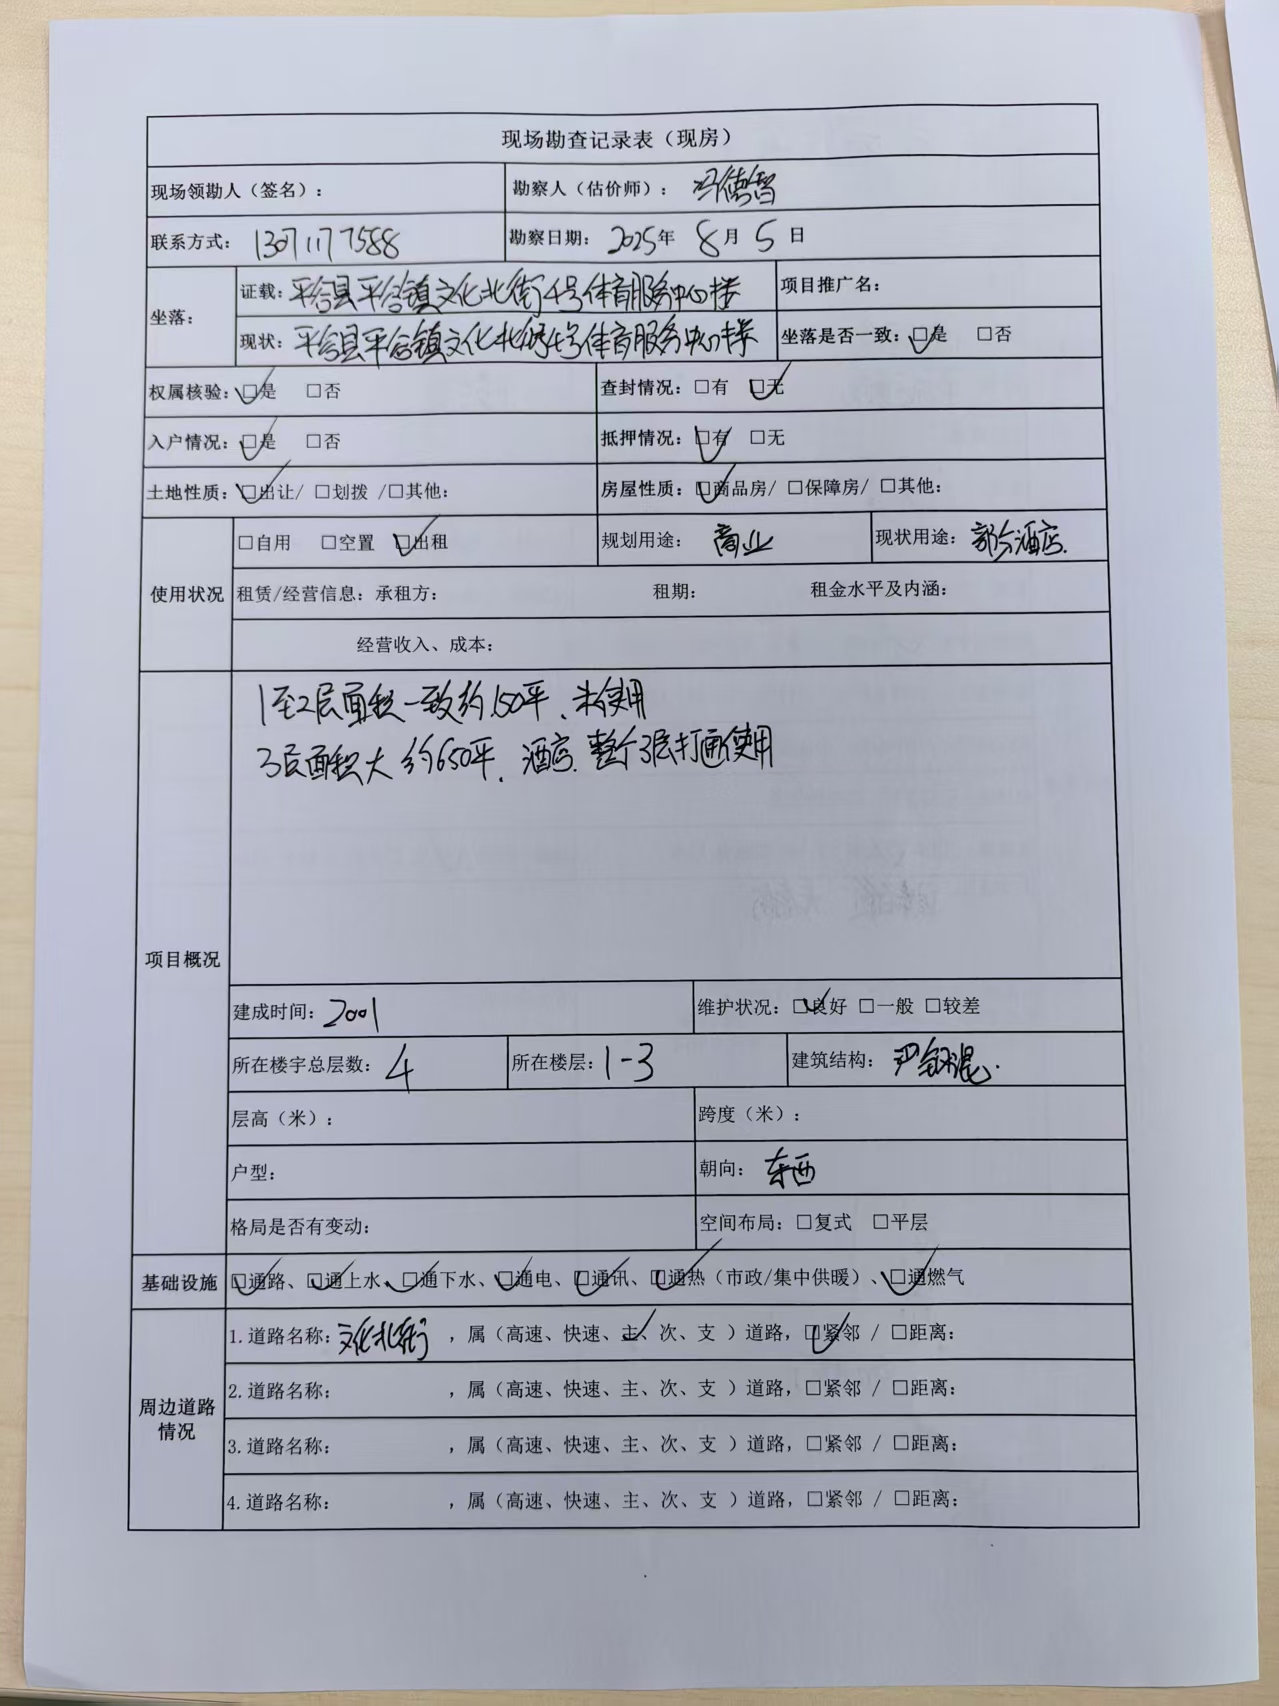 现场勘查记录表（现房）
现场领勘人（签名）：
勘察人（估价师）： 冯德智
联系方式： 13071177588
勘察日期： 2025年 8月 5日
坐落：
证载： 平谷县平谷镇文化北街4号体育服务中心楼
项目推广名：
现状： 平谷县平谷镇文化北街4号体育服务中心楼
坐落是否一致：☑是 □否
权属核验：☑是 □否
查封情况：□有 ☑无
入户情况：☑是 □否
抵押情况：☑有 □无
土地性质：☑出让/ □划拨 /□其他：
房屋性质：☑商品房/ □保障房/ □其他：
使用状况
□自用 □空置 ☑出租
规划用途： 商业
现状用途： 部分酒店.
租赁/经营信息：承租方： 租期： 租金水平及内涵：
经营收入、成本：
项目概况
1至2层面积一致约150平、未使用
3层面积大 约650平、酒店. 整个3层打通使用
建成时间：2001
维护状况：☑良好 □一般 □较差
所在楼宇总层数： 4
所在楼层： 1-3
建筑结构： 钢混.
层高（米）：
跨度（米）：
户型：
朝向： 东西
格局是否有变动：
空间布局：□复式 □平层
基础设施
☑通路、☑通上水、☑通下水、☑通电、☑通讯、☑通热（市政/集中供暖）、☑通燃气
周边道路情况
1.道路名称：文化北街 ，属（高速、快速、主✓、次、支 ）道路，☑紧邻 / □距离：
2.道路名称： ，属（高速、快速、主、次、支 ）道路，□紧邻 / □距离：
3.道路名称： ，属（高速、快速、主、次、支 ）道路，□紧邻 / □距离：
4.道路名称： ，属（高速、快速、主、次、支 ）道路，□紧邻 / □距离：